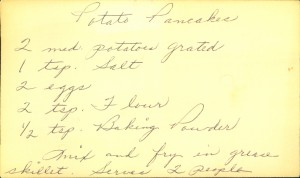 Potato Pancakes
2 med potatoes grated
1 tsp. Salt
2 eggs
2 tsp. Flour
1/2 tsp. Baking Powder
Mix and fry in grease
skillet. Serves 2 people